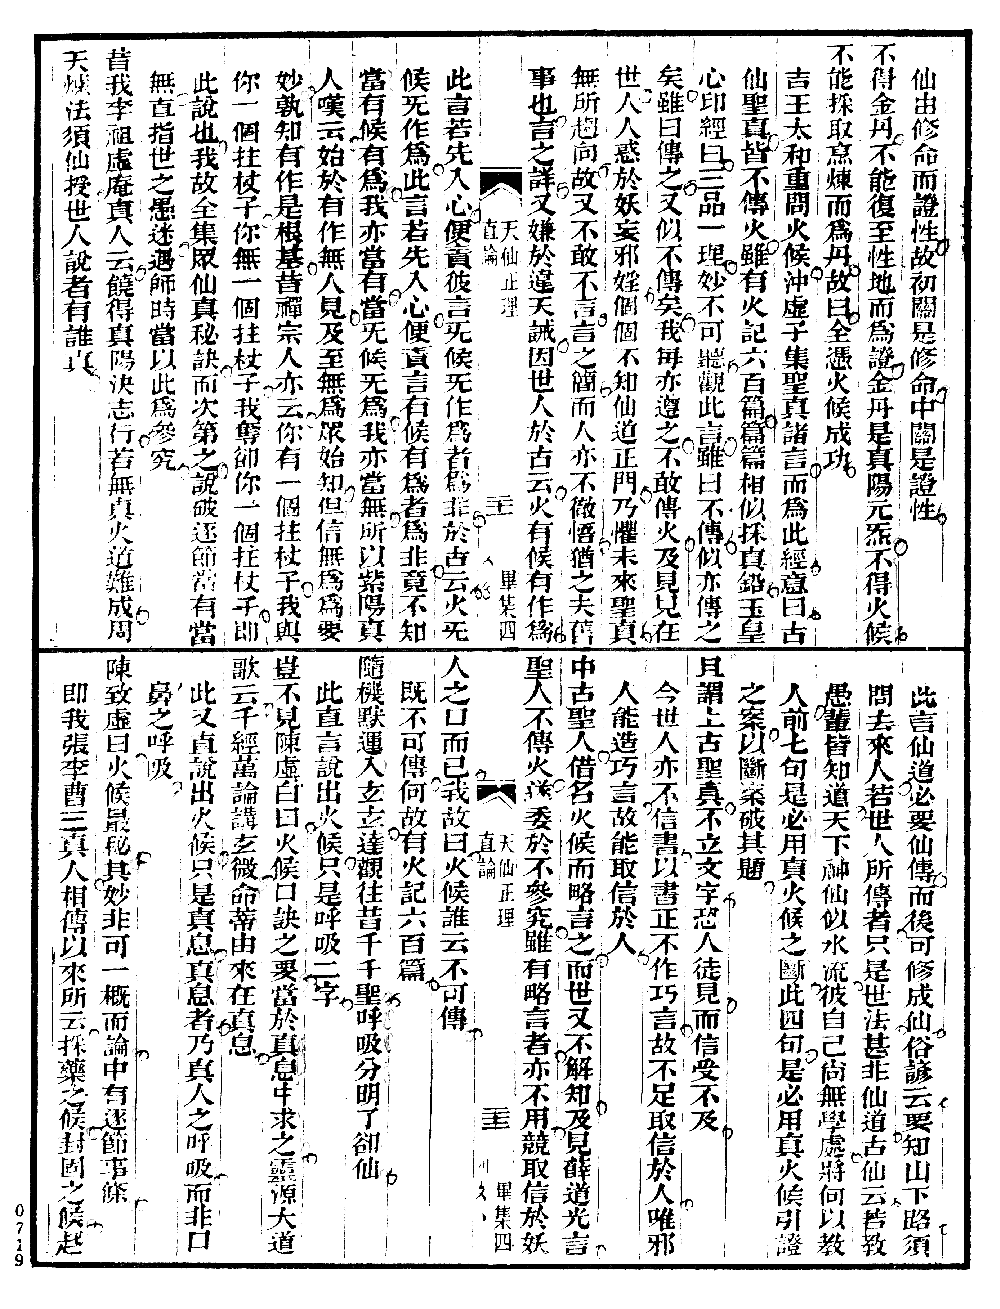 仙由修命而證性故初關是修命中關是證性
不得金丹不能復至性地而爲證金丹是真陽元炁不得火候
不能採取烹煉而爲丹故曰全憑火候成功
吉王太和重問火候沖虛子集聖真諸言而爲此經意曰古
仙聖真皆不傳火雖有火記六百篇篇篇相似採真鉛玉皇
心印經曰三品一理妙不可聽觀此言雖曰不傳似亦傳之
矣雖曰傳之又似不傳矣我每亦遵之不敢傳火及見見在
世人人惑於妖妄邪婬個個不知仙道正門乃懼未來聖真
無所趨向故又不敢不言言之簡而人亦不徹悟猶之夫舊
事也言之詳又嫌於違天誡因世人於古云火有候有作爲
天仙正理
直論
三十
畢集四
此言若先入心便責彼言旡候旡作爲者爲非於古云火旡
候旡作爲此言若先入心便責言有候有爲者爲非竟不知
當有候有爲我亦當有當旡候旡爲我亦當無所以紫陽真
人嘆云始於有作無人見及至無爲眾始知但信無爲爲要
妙孰知有作是根基昔禪宗人亦云你有一個拄杖子我與
你一個拄杖子你無一個拄杖子我奪卻你一個拄杖子即
此說也我故全集眾仙真秘訣而次第之說破逐節當有當
無直指世之愚迷遇師時當以此爲參究
昔我李祖虛庵真人云饒得真陽決志行若無真火道難成周
天煉法須仙授世人說者有誰真
此言仙道必要仙傳而後可修成仙俗諺云要知山下路須
問去來人若世人所傳者只是世法甚非仙道古仙云若教
愚輩皆知道天下神仙似水流彼自己尚無學處將何以教
人前七句是必用真火候之斷此四句是必用真火候引證
之案以斷案破其題
且謂上古聖真不立文字恐人徒見而信受不及
今世人亦不信書以書正不作巧言故不足取信於人唯邪
人能造巧言故能取信於人
中古聖人借名火候而略言之而世又不解知及見薛道光言
聖人不傳火遂委於不參究雖有略言者亦不用競取信於妖
天仙正理
直論
三十
畢集四
人之口而已我故曰火候誰云不可傳
既不可傳何故有火記六百篇
隨機默運入玄玄達觀往昔千千聖呼吸分明了卻仙
此直言說出火候只是呼吸二字
豈不見陳虛白曰火候口訣之要當於真息中求之靈源大道
歌云千經萬論講玄微命蒂由來在真息
此又直說出火候只是真息真息者乃真人之呼吸而非口
鼻之呼吸
陳致虛曰火候最秘其妙非可一概而論中有逐節事條
即我張李曹三真人相傳以來所云採藥之候封固之候起
0719